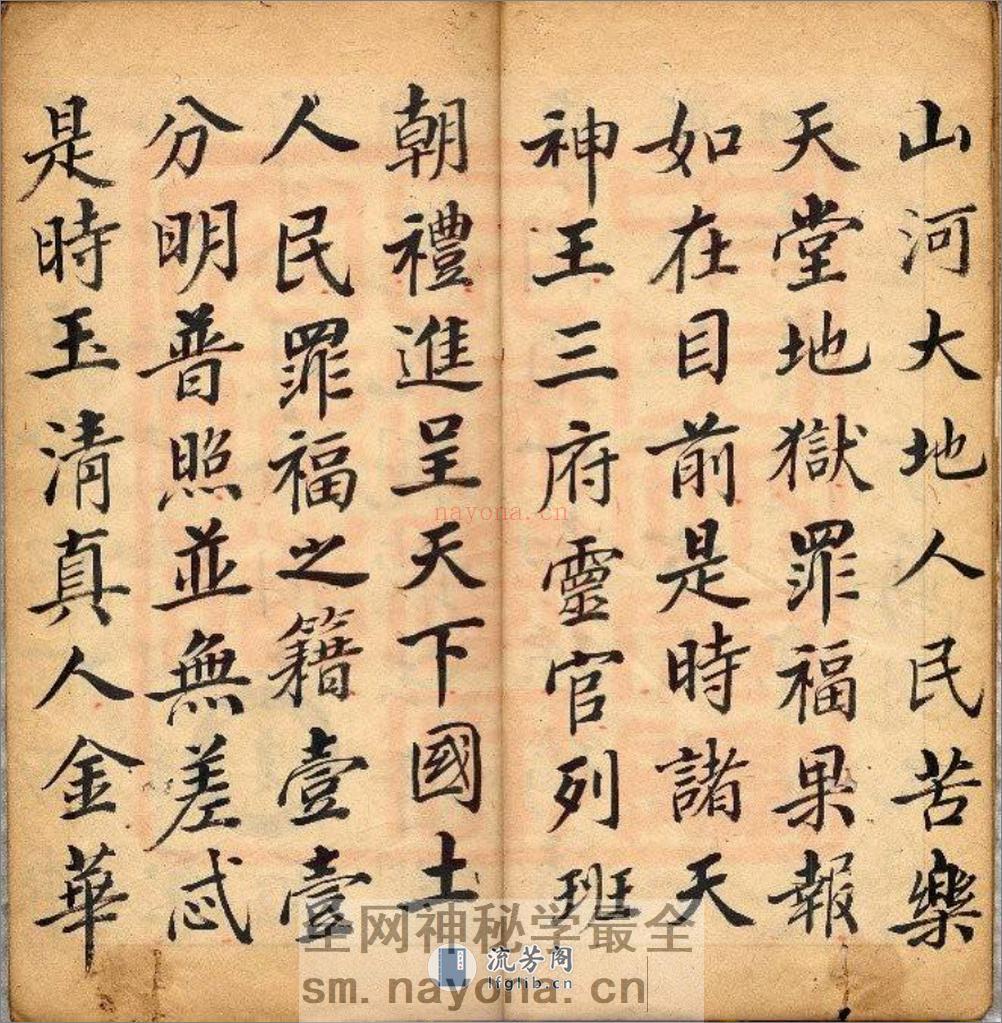 山河大地人民苦樂
天堂地獄罪福果報
如在目前是時諸天
神王三府靈官列班
朝禮進呈天下國土
人民罪福之籍壹壹
分明普照並無差忒
是時玉清真人金華
nayona.cn
全网神秘学最全
流芳阁
lfglib.cn
sm.nayona.cn